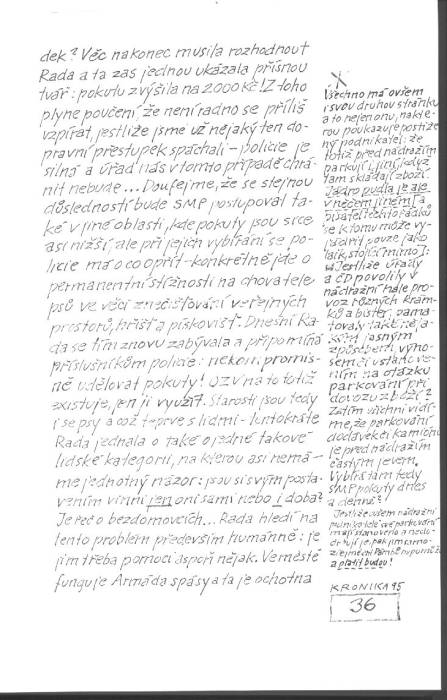 dek? Věc nakonec musila rozhodnout
Rada a ta zas jednou ukázala přísnou
tvář: pokutu zvýšila na 2000 Kč! Z toho
plyne poučení, že není radno se příliš
vzpírat, jestliže jsme už nějaký ten do-
pravní přestupek spáchali – policie je
silná a úřad nás v tomto případě chrá-
nit nebude... Doufejme, že se stejnou
důsledností bude SMP postupovat ta-
ké v jiné oblasti, kde pokuty jsou sice
asi nižší, ale při jejich vybírání se po-
licie má o co opřít – konkrétně jde o
permanentní stížnosti na chovatele
psů ve věci znečišťování veřejných
prostorů, hřišť a pískovišť. Dnešní Ra-
da se tím znovu zabývala a připomíná
příslušníkům policie: nekompromis-
ně udělovat pokuty! OZV na to totiž
existuje, jen ji využít. Starosti jsou tedy
i se psy a což teprve s lidmi – tuntokráte
Rada jednala o také o jedné takové
lidské kategorii, na kterou asi nemá-
me jednotný názor: jsou si svým posta-
vením vinni jen oni sami nebo i doba?
Je řeč o bezdomovcích... Rada hledí na
tento problém především humánně: je
jim třeba pomoci aspoň nějak. Ve městě
funguje Armáda spásy a ta je ochotna
Všechno má ovšem
i svou druhou stránku
a to nejen onu, na kte-
rou poukazuje postiže-
ný podnikatel: že
totiž před nádražím
parkují i jiní, když
tam skládají zboží.
Jádro pudla je ale
v něčem jiném (a
pisatel těchto řádků
se k tomu může vy-
jádřit pouze jako
laik, stojící mimo):
Jestliže úřady
a ČD povolily v
nádražní hale pro-
voz různých krám-
ků a bister, pama-
tovaly také na ja-
kým jasným
způsobem, výno-
sem či ustanove-
ním na otázku
parkování při
dovozu zboží?
Zatím všichni vidí-
me, že parkování
dodávek či kamionů
je před nádražím
častým jevem.
Vybírá tam tedy
SMP pokuty dnes
a denně?
Jestliže ovšem nádražní
mají stanoveno a nedo-
držují je, pak jim samo-
zřejmě ni Pámbu nepomůže
a platit budou!
KRONIKA 95
36